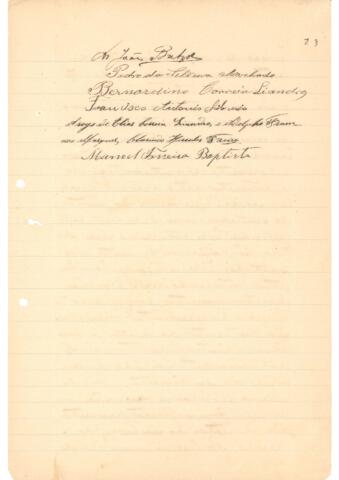 73
João Baptista
Pedro da Silveira Machado
Bernardino Correia Leandro
Francisco Antonio
A rogo de Elias Correia Leandro, e Adolpho Fran
Marques, Clarindo
Manoel Ferreira Baptista